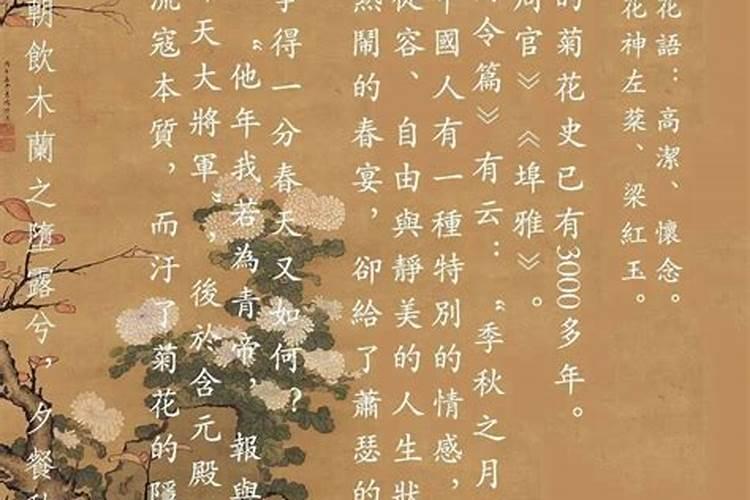 花語：高潔、懷念。
花神左棻、梁紅玉。
的菊花史已有3000多年。
周官》《埠雅》。
令篇》有云：“季秋之月
中國人有一種特別的情感，
從容、自由與靜美的人生狀
熱鬧的春宴，卻給了蕭瑟的
爭得一分春天又如何？
“他年我若為青帝，報與
天大將軍”，後於含元殿
流寇本質，而汙了菊花的隱
朝飲木蘭之墮露兮，夕餐秋